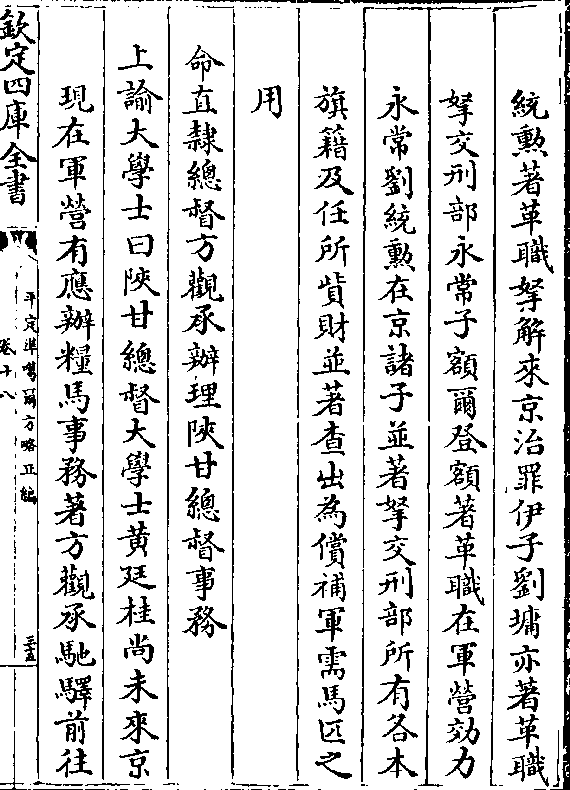 統勲著革職拏解來京治罪伊子劉墉亦著革職
拏交刑部永常子額爾登額著革職在軍營効力
永常劉統勲在京諸子並著拏交刑部所有各本
旗籍及任所貲財並著查出為償補軍需馬匹之
用
命直隷總督方觀承辦理陜甘總督事務
上諭大學士曰陜甘總督大學士黄廷桂尚未來京
現在軍營有應辦糧馬事務著方觀承馳驛前往
欽定四庫全書
平定準噶爾方略正編
卷十八
三五